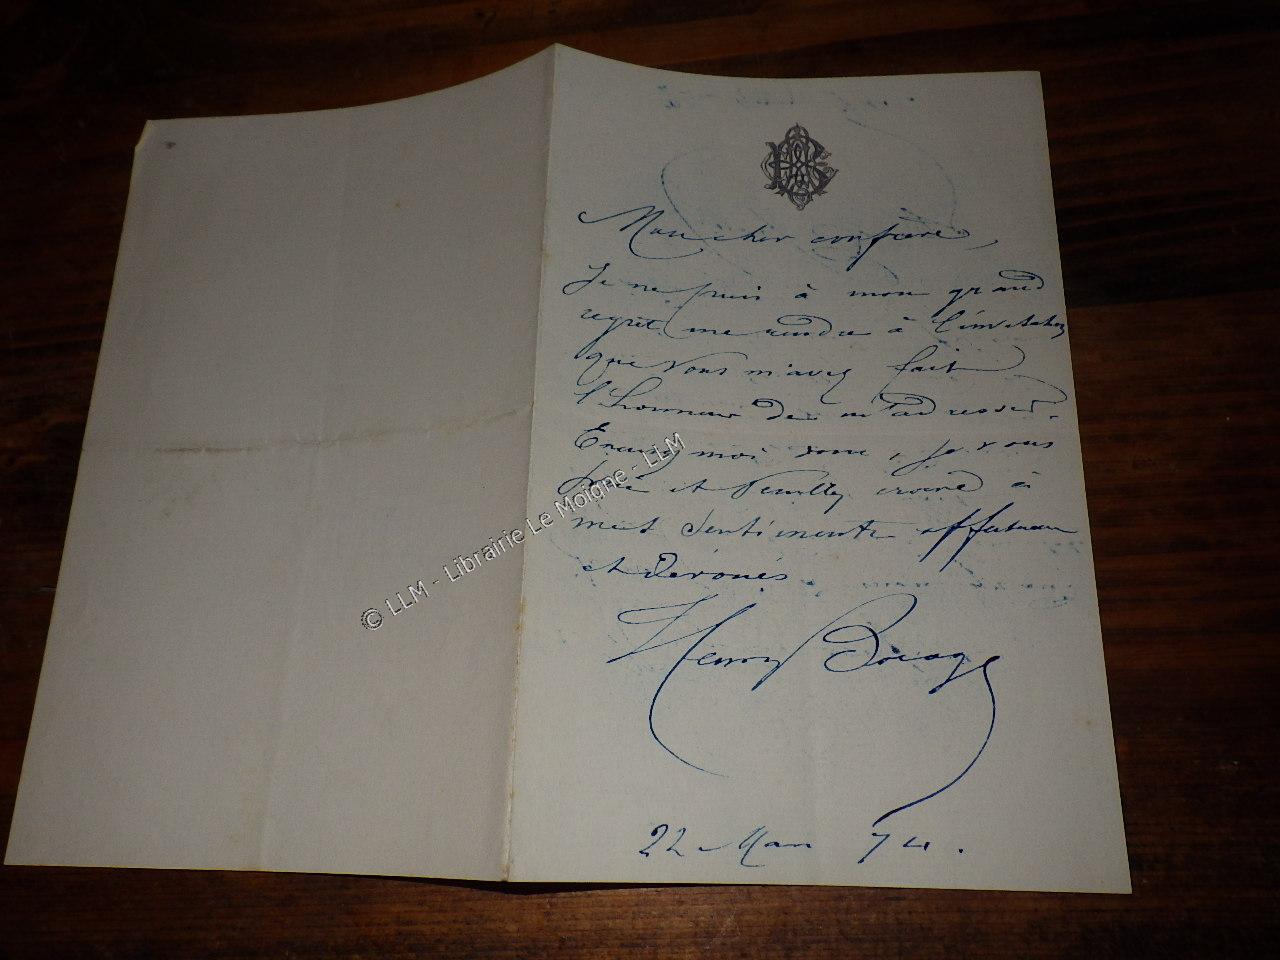 Mon cher confrère,
Je ne puis à mon grand
regret me rendre à l'invitation
que vous m'avez fait
l'honneur de m'adresser.
Excusez moi donc, je vous
prie et veuillez croire à
mes sentiments affectueux
et dévoués
Henry Bocage
22 Mars 74.
© LLM - Librairie Le Moigne - LLM